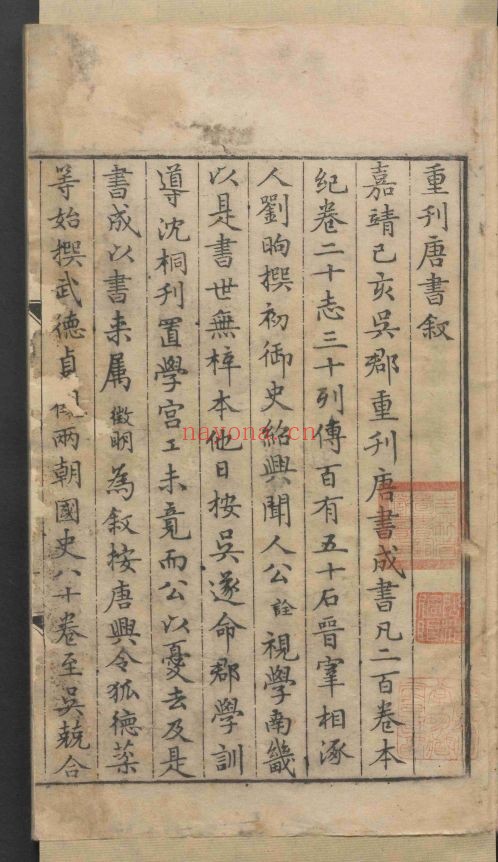 重刊唐書叙
嘉靖己亥吳郡重刊唐書成書凡二百卷本
紀卷二十志三十列傳百有五十石晉宰相涿
人劉昫撰初御史紹興聞人公詮視學南畿
以是書世無梓本他日按吳遂命郡學訓
導沈桐刊置學宮工未竟而公以憂去及是
書成以書来属徵明為叙按唐興令狐德棻
等始撰武德貞兩朝國史八十卷至吳兢合
nayona.cn